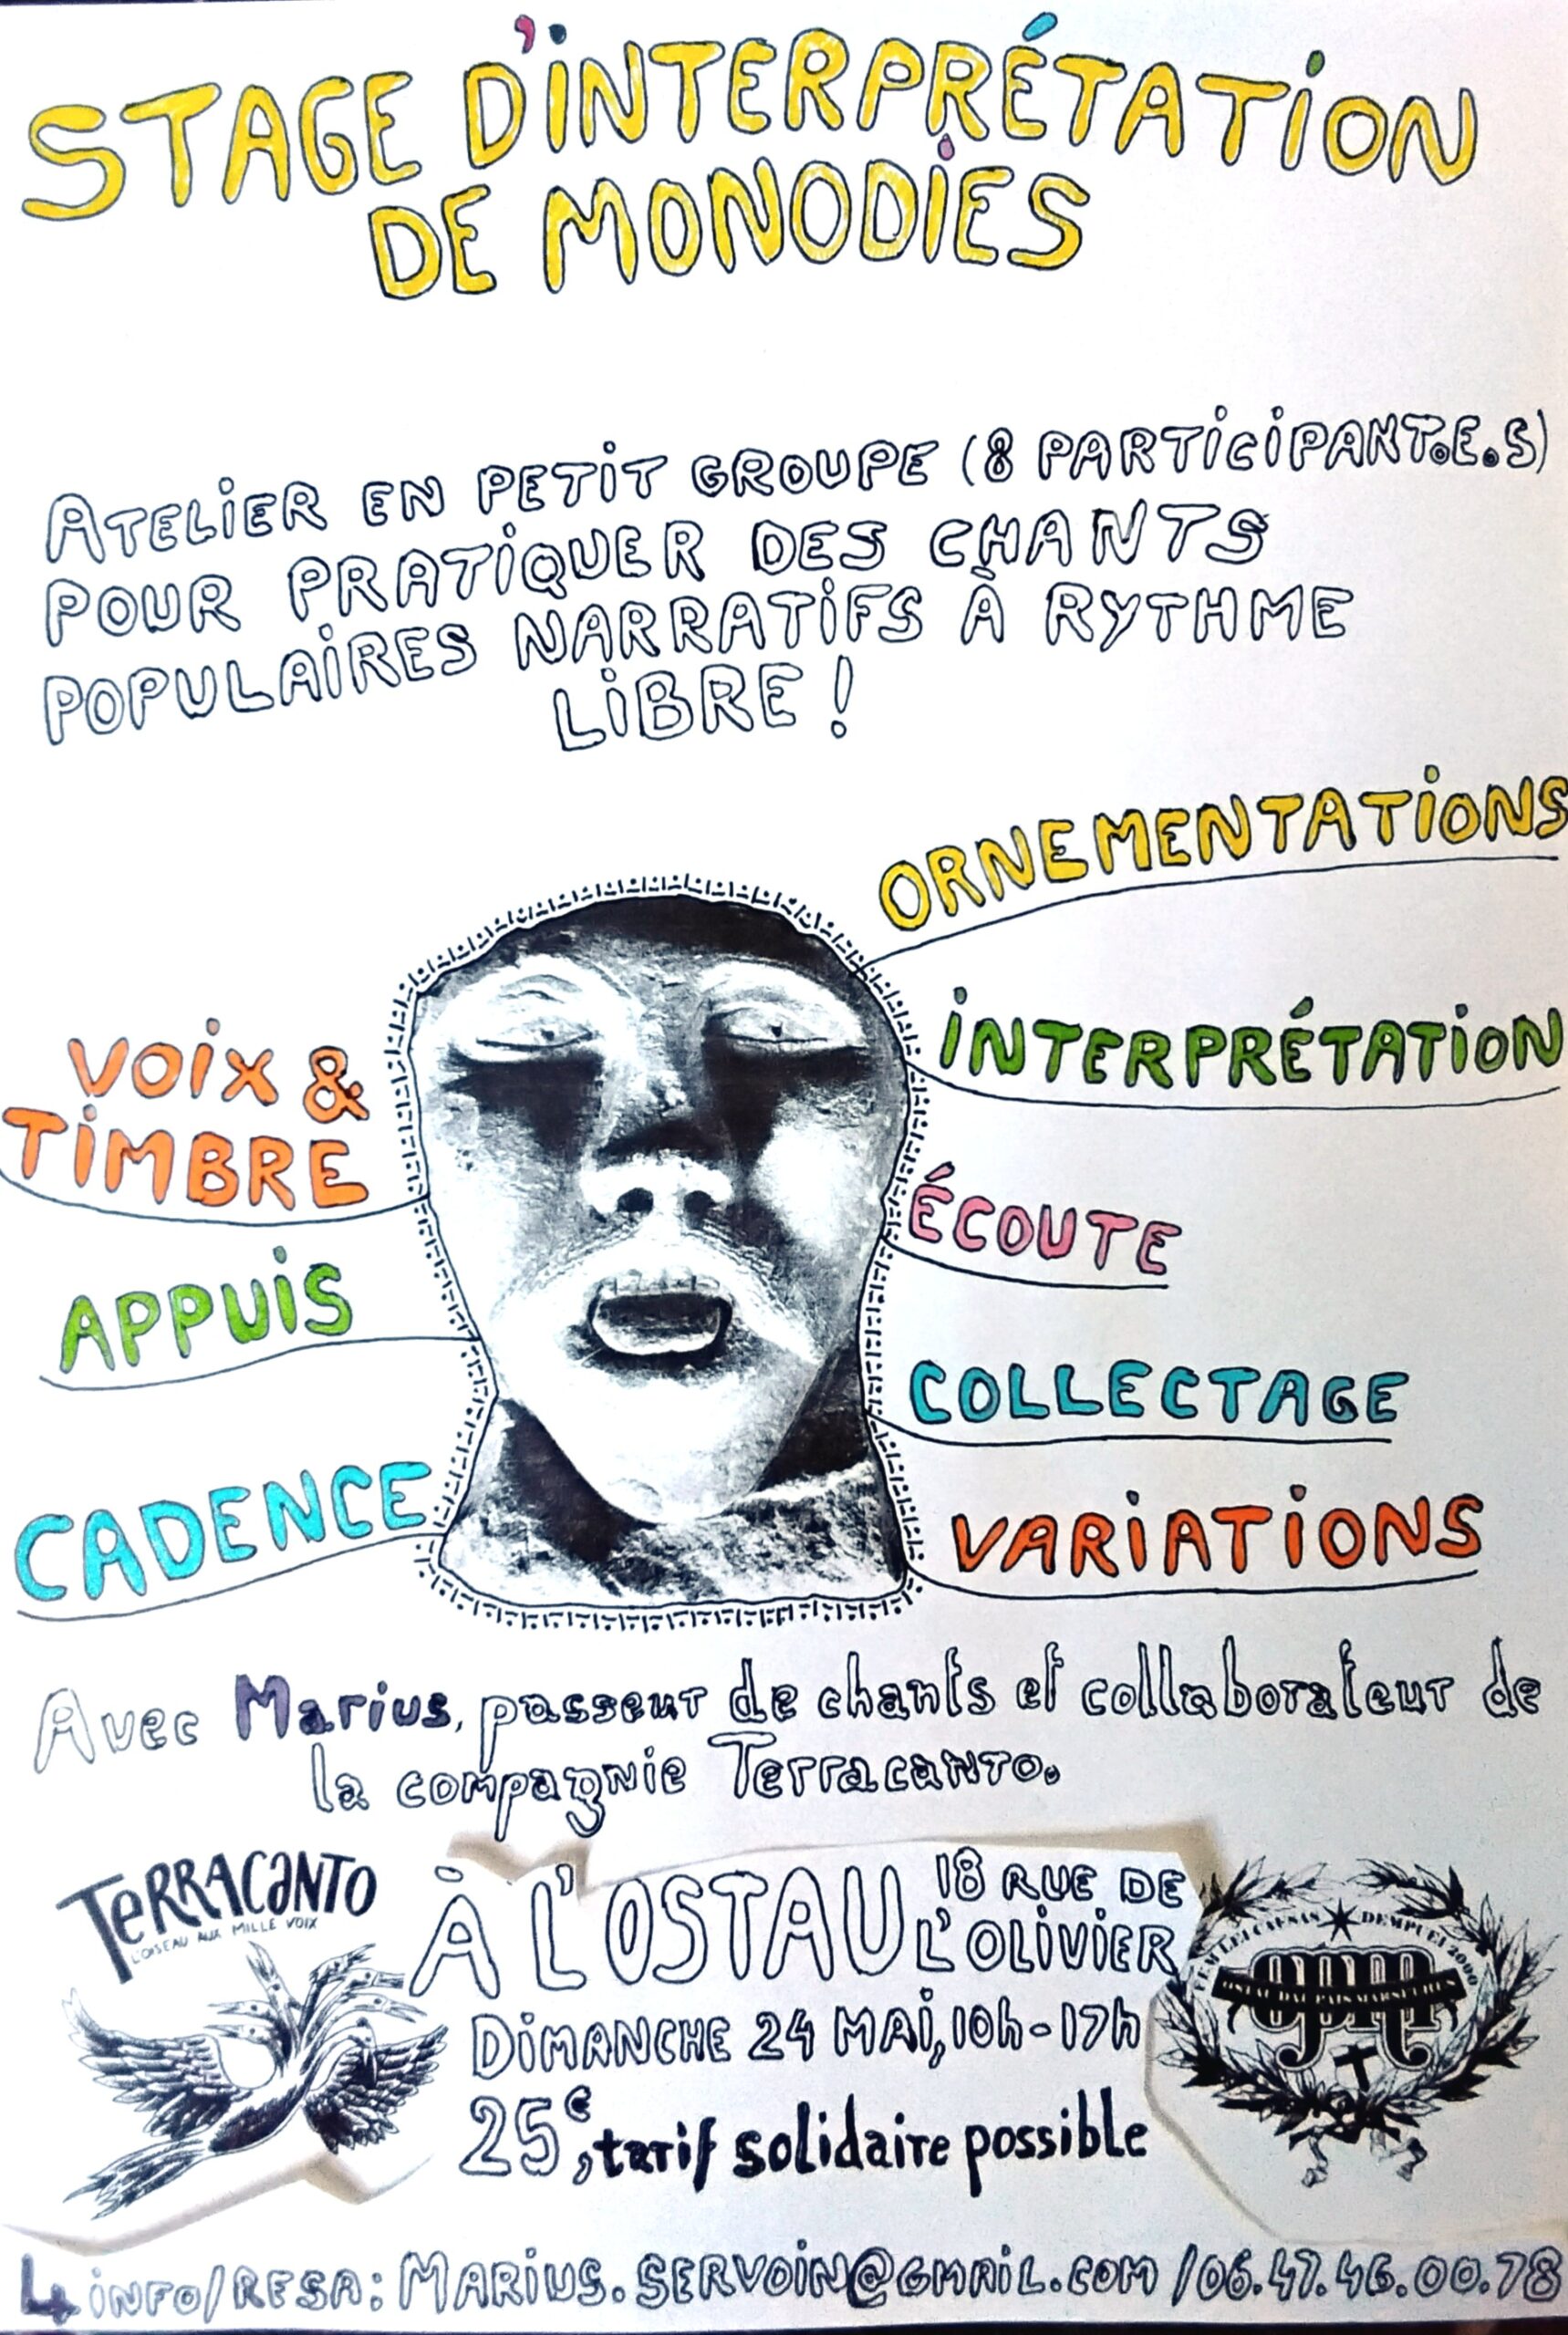 STAGE D'INTERPRÉTATION
DE MONODIES
ATELIER EN PETIT GROUPE (8 PARTICIPANT.E.S)
POUR PRATIQUER DES CHANTS
POPULAIRES NARRATIFS À RYTHME
LIBRE !
ORNEMENTATIONS
INTERPRÉTATION
VOIX &
TIMBRE
ÉCOUTE
APPUIS
COLLECTAGE
CADENCE
VARIATIONS
Avec Marius, passeur de chants et collaborateur de
la compagnie Terracanto.
TERRACANTO
L'OISEAU AUX MILLE VOIX
À L'OSTAU
18 RUE DE
L'OLIVIER
DIMANCHE 24 MAI, 10h-17h
25€, tarif solidaire possible
FEM LEI CAUSAS DEMPUEI 2000
OPM
OSTAU DAU PAÍS MARSELHÉS
↳ INFO/RESA: MARIUS.SERVOIN@GMAIL.COM /06.47.46.00.78